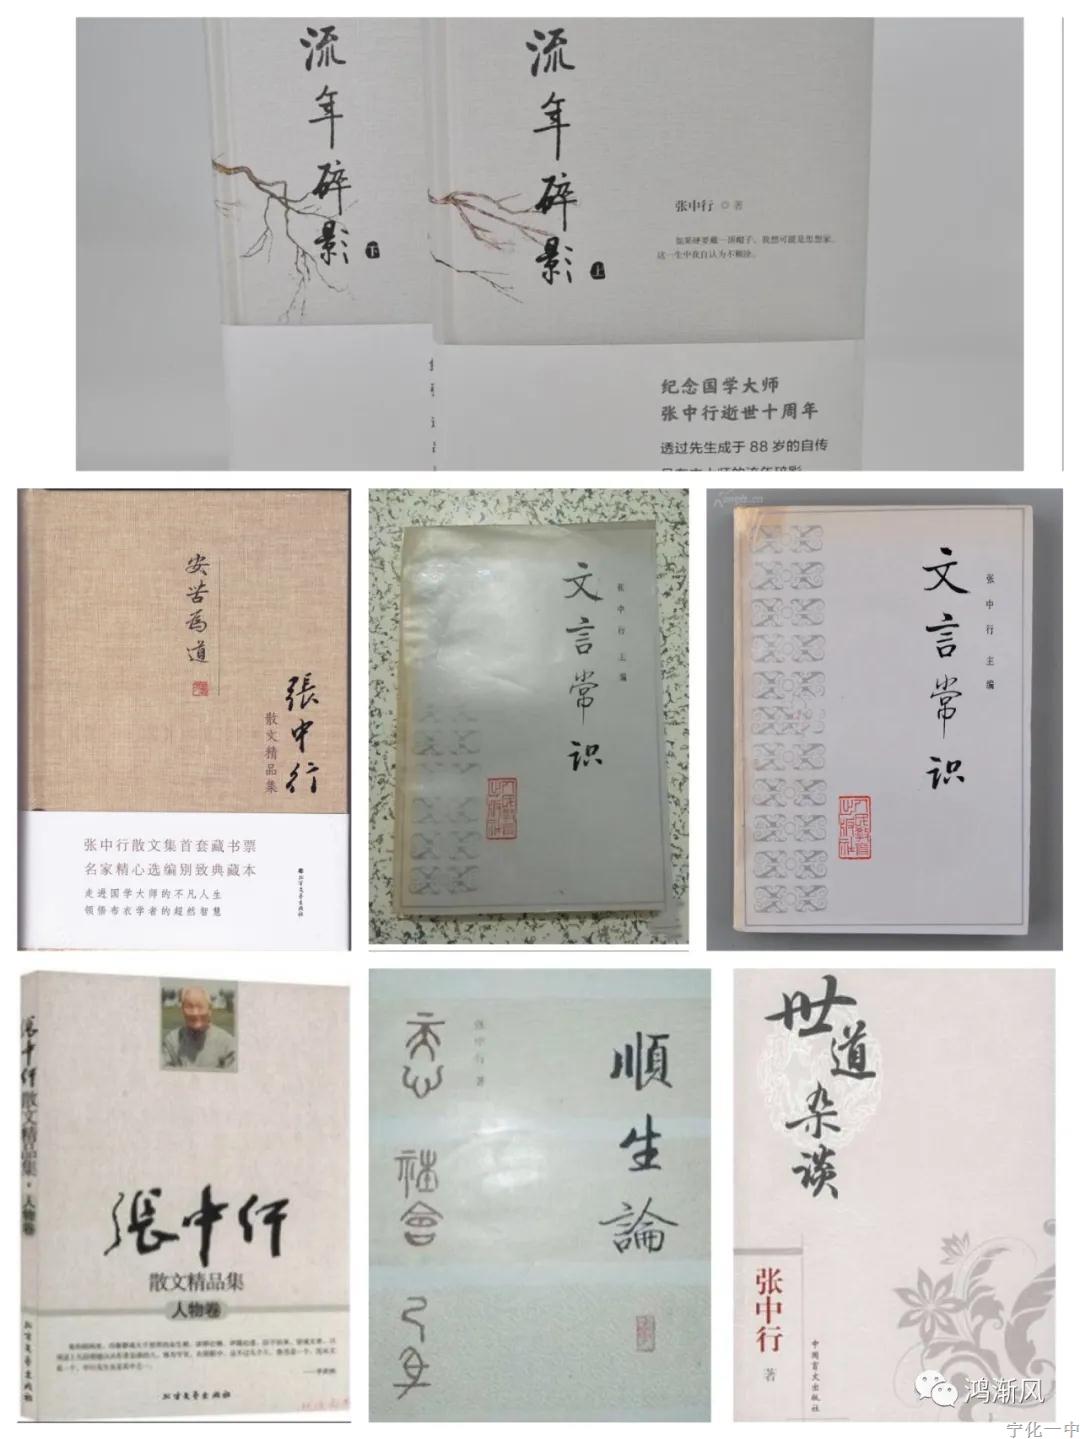 流年碎影
下
流年碎影
上
张中行 ◎ 著
如果硬要戴一顶帽子，我想可能是思想家。
这一生中我自认为不糊涂。
纪念国学大师
张中行逝世十周年
透过先生成于 88 岁的自传
安苦为道
張中行
散文精品集
张中行散文集首套藏书票
名家精心选编别致典藏本
走进国学大师的不凡人生
领悟布衣学者的超然智慧
北方文艺出版社
文言常识
张中行 主编
人民教育出版社
文言常识
张中行 主编
人民教育出版社
張中行散文精品集·人物卷
張中行
散文精品集
人物卷
北方文艺出版社
順生論
张中行 著
社會
世道杂谈
张中行
著
中国盲文出版社
鸿渐风
宁化一中